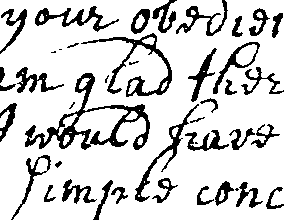 your obedien
am glad ther
I would have
simple conc